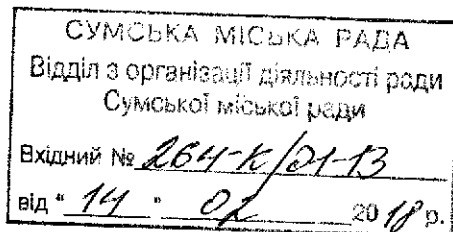 СУМСЬКА МІСЬКА РАДА
Відділ з організації діяльності ради
Сумської міської ради
Вхідний № 264-К/01-13
від "14" 02 2018 р.